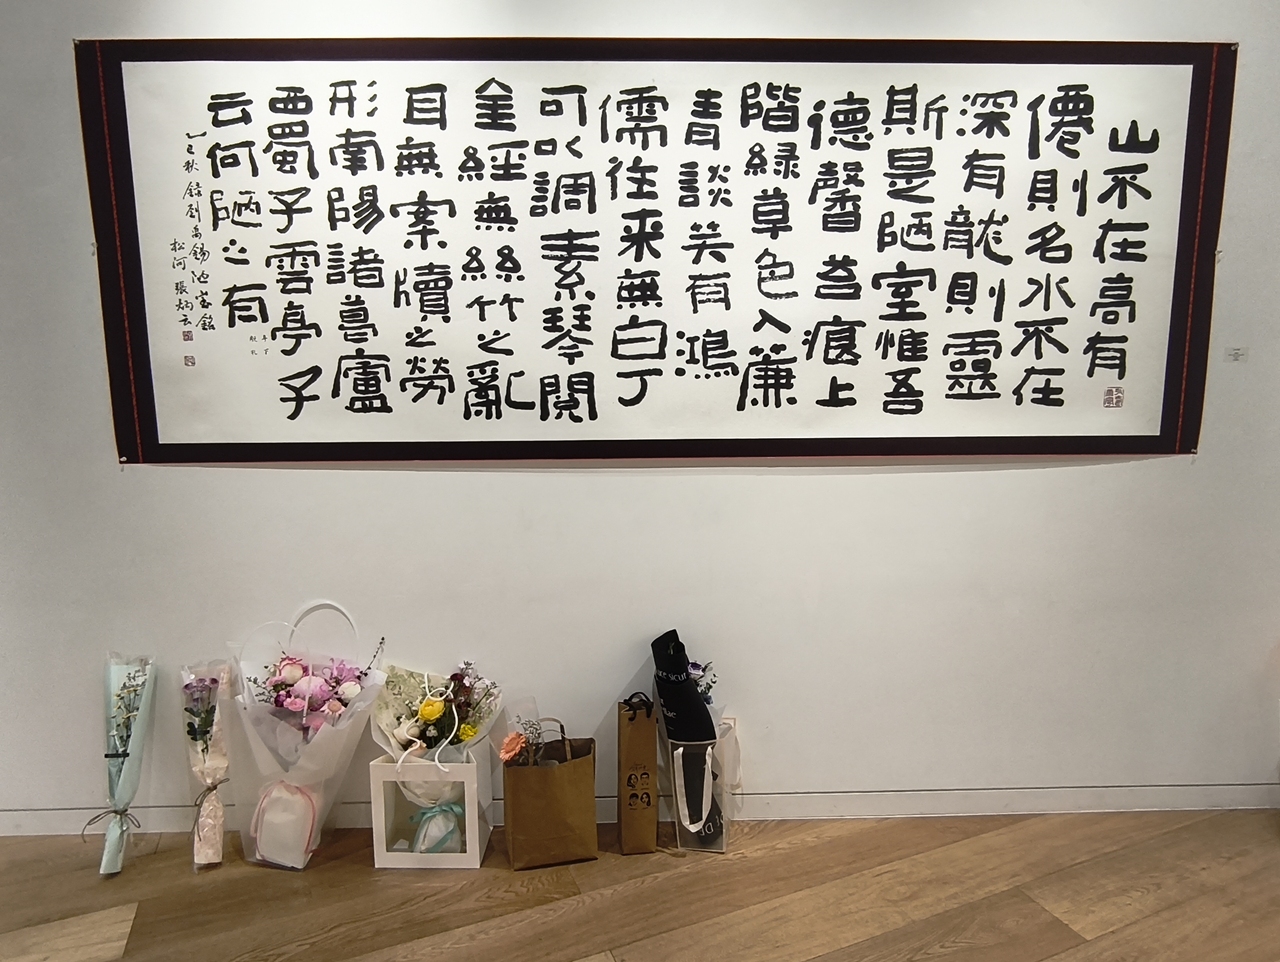 山不在高有
僊則名水不在
深有龍則靈
斯是陋室惟吾
德馨苔痕上
階緑草色入簾
青談笑有鴻
儒往来無白丁
可以調素琴閲
金經無絲竹之亂
耳無案牘之勞
形南陽諸葛廬
西蜀子雲亭子
云何陋之有
乙巳秋録劉禹錫陋室銘
松河張炳云